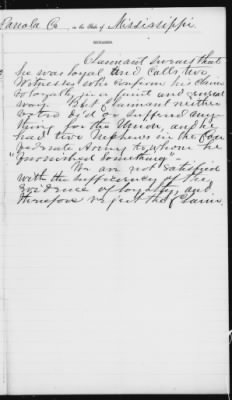 Panola Co in the State of Mississippi
REMARKS.
Claimant swears that
he was loyal and calls two
witnesses who confirm his claim
to loyalty, in a faint and general
way. But Claimant neither
voted, did or suffered any
thing for the Union, and he
had two Nephews in the Con
federate Army to whom he
"furnished something" -
We are not satisfied
with the sufficiency of the
evidence of loyalty, and
therefore reject the Claim.